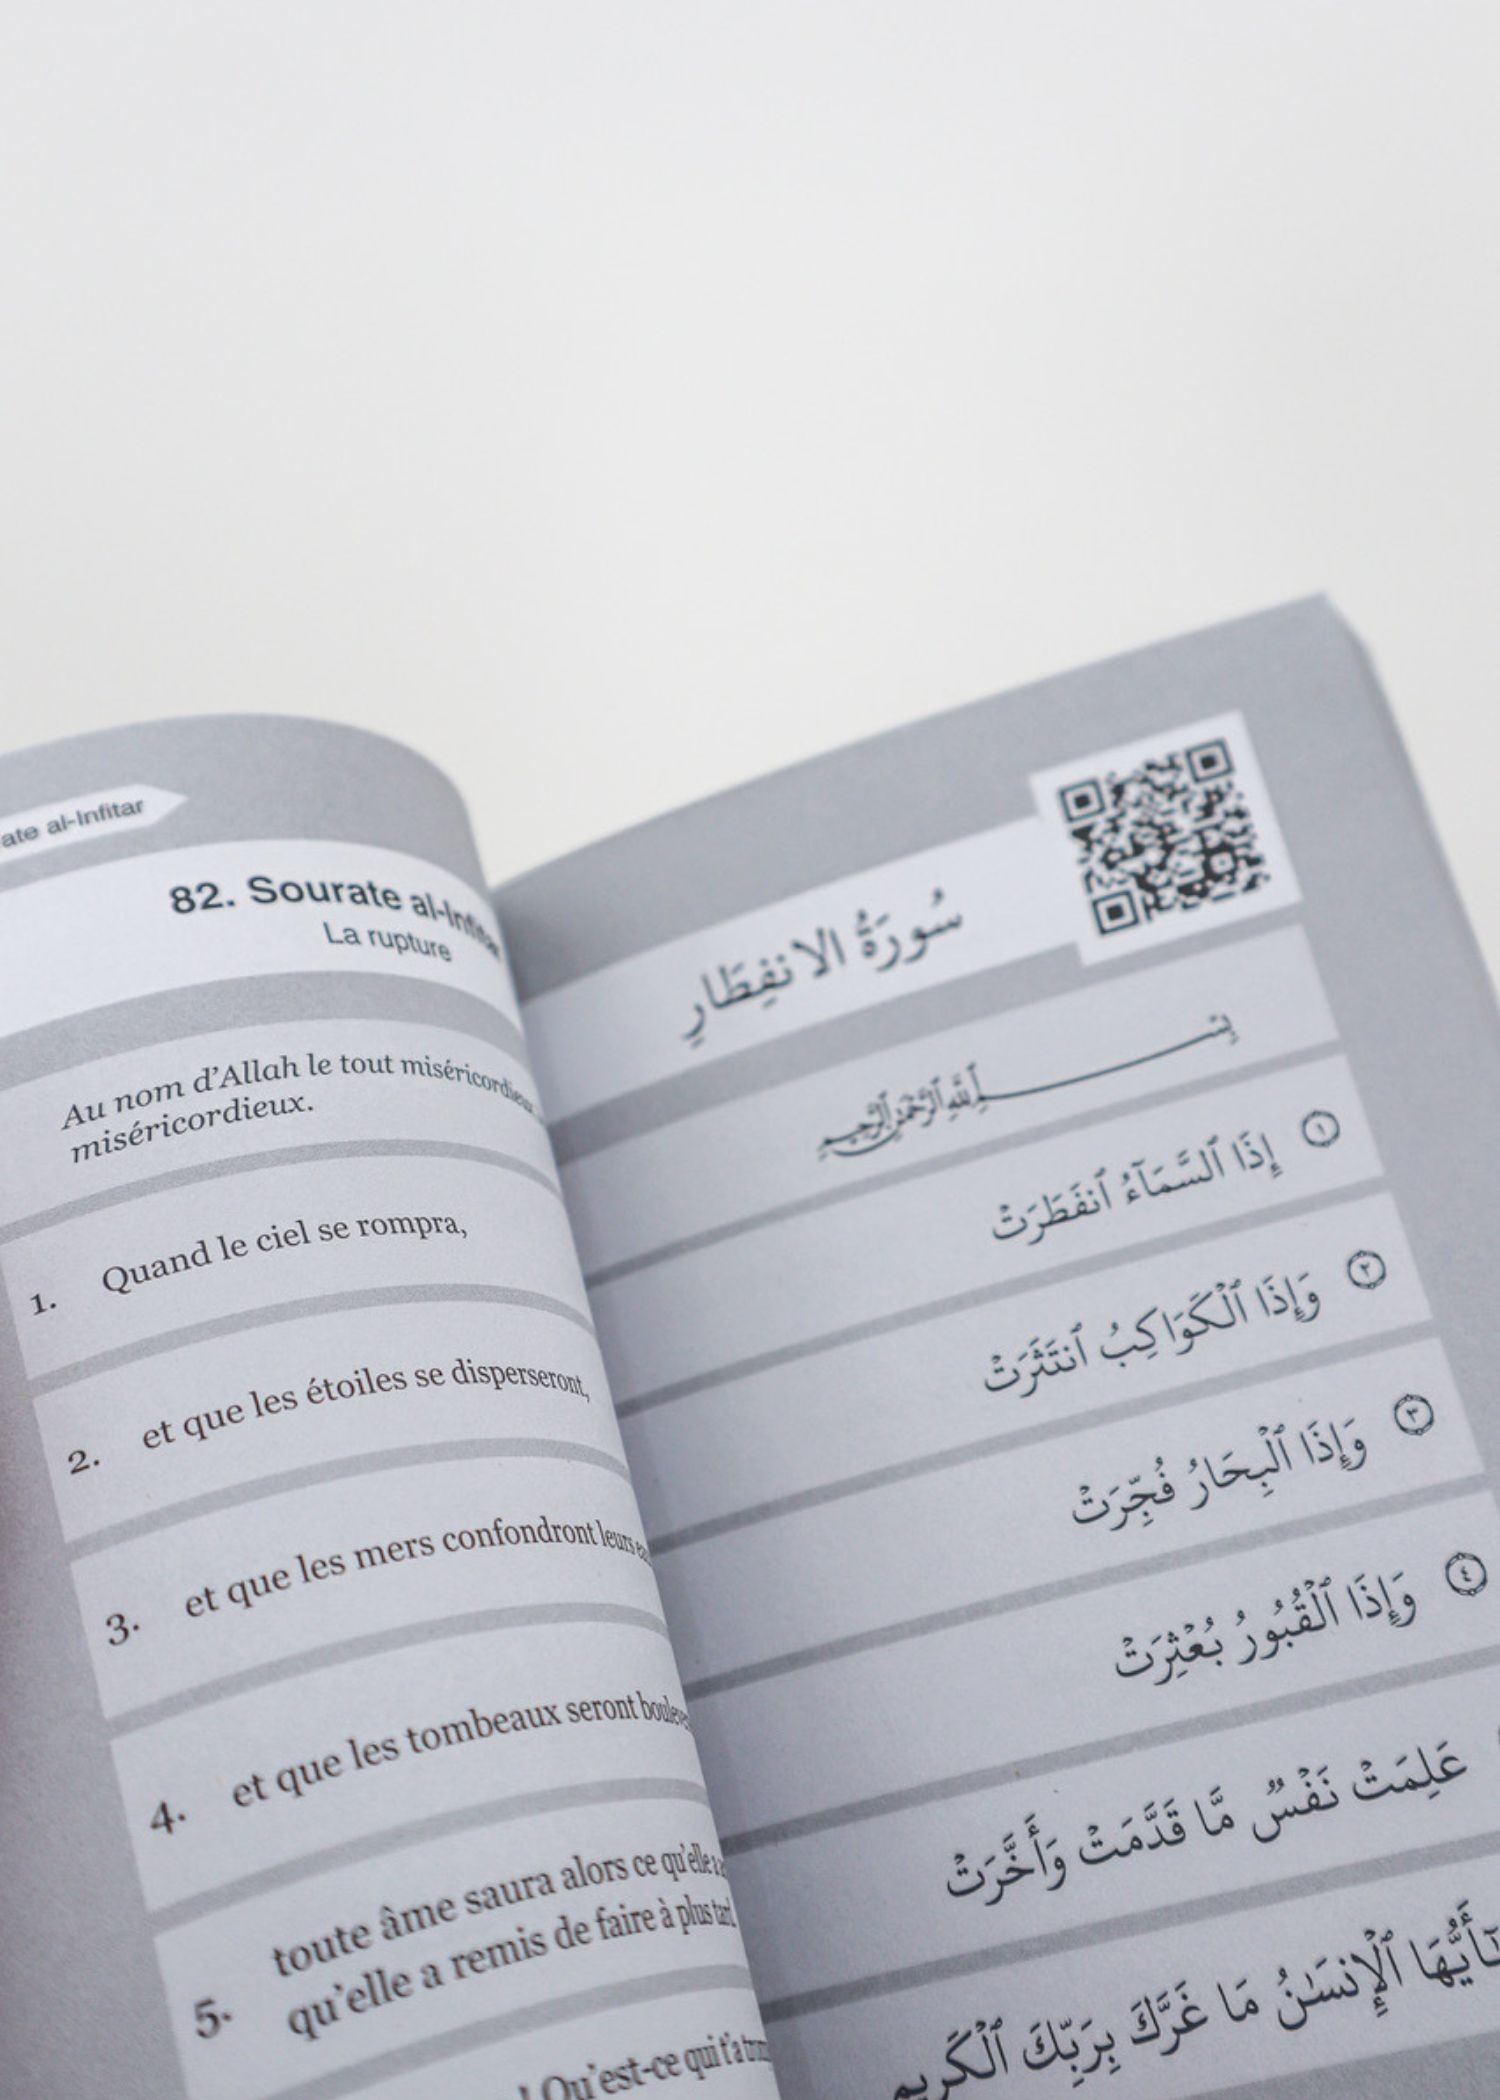 ate al-Infitar
82. Sourate al-Infitar
La rupture
Au nom d’Allah le tout miséricordieux,
miséricordieux.
1. Quand le ciel se rompra,
2. et que les étoiles se disperseront,
3. et que les mers confondront leurs
4. et que les tombeaux seront
5. toute âme saura alors ce qu’elle a
qu’elle a remis de faire à plus tard.
! Qu’est-ce qui t’a
سُورَةُ الانفِطَارِ
بِسْمِ اللَّهِ الرَّحْمَٰنِ الرَّحِيمِ
١ إِذَا ٱلسَّمَآءُ ٱنفَطَرَتْ
٢ وَإِذَا ٱلْكَوَاكِبُ ٱنتَثَرَتْ
٣ وَإِذَا ٱلْبِحَارُ فُجِّرَتْ
٤ وَإِذَا ٱلْقُبُورُ بُعْثِرَتْ
عَلِمَتْ نَفْسٌ مَّا قَدَّمَتْ وَأَخَّرَتْ
يَٰٓأَيُّهَا ٱلْإِنسَٰنُ مَا غَرَّكَ بِرَبِّكَ ٱلْكَرِيمِ